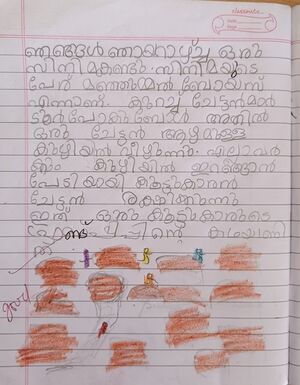 classmate
Date
Page
ഞങ്ങൾ ഞായറാഴ്ച്ച ഒരു
സിനിമകണ്ടു. സിനിമയുടെ
പേര് മഞ്ഞുമ്മൽ ബോയ്സ്
എന്നാണ്. കുറച്ച് ചേട്ടൻമാർ
ടൂർപോകുമ്പോൾ അതിൽ
ഒരു ചേട്ടൻ ആഴമുള്ള
കുഴിയിൽ വീഴുന്നു. എല്ലാവർ
ക്കും കുഴിയിൽ ഇറങ്ങാൻ
പേടിയായി കൂട്ടുകാരൻ
ചേട്ടൻ രക്ഷിക്കുന്നു
ഇത് ഒരു കൂട്ടുകാരുടെ
കഥയാണ്
good